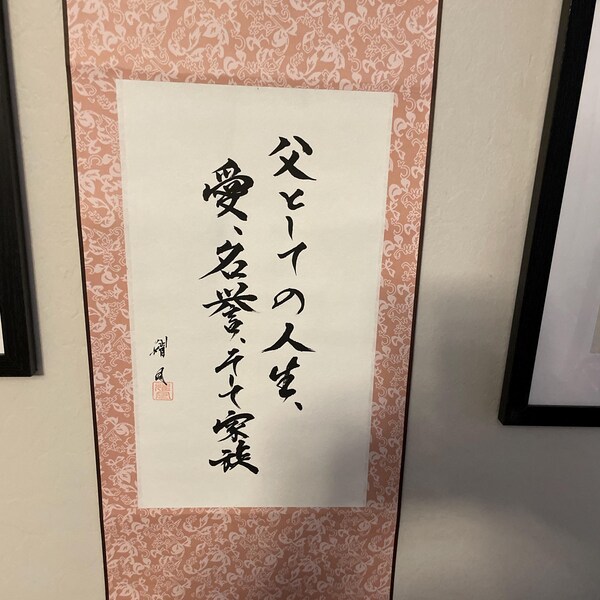 父としての人生、
愛、名誉、そして家族